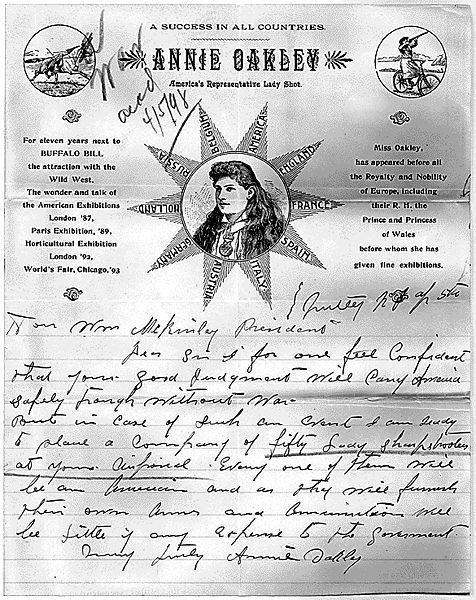 A SUCCESS IN ALL COUNTRIES.
ANNIE OAKLEY
America's Representative Lady Shot.
War
ackd
4/5/98
For eleven years next to
BUFFALO BILL
the attraction with the
Wild West.
The wonder and talk of
the American Exhibitions
London '87,
Paris Exhibition, '89,
Horticultural Exhibition
London '92,
World's Fair, Chicago, '93
AMERICA
ENGLAND
FRANCE
SPAIN
ITALY
AUSTRIA
GERMANY
HOLLAND
RUSSIA
BELGIUM
Miss Oakley,
has appeared before all
the Royalty and Nobility
of Europe, including
their R. H. the
Prince and Princess
of Wales
before whom she has
given fine exhibitions.
Nutley NJ Ap 5th
Hon Wm McKinley President
Dear Sir I for one feel Confident
that your good judgment will carry America
safely trough without War-
But in case of Such an Event I am ready
to place a Company of fifty lady sharpshooters
at your disposal. Every one of them will
be an American and as they will furnish
their own Arms and Ammunition will
be little if any expense to the government.
Very truly
Annie Oakley